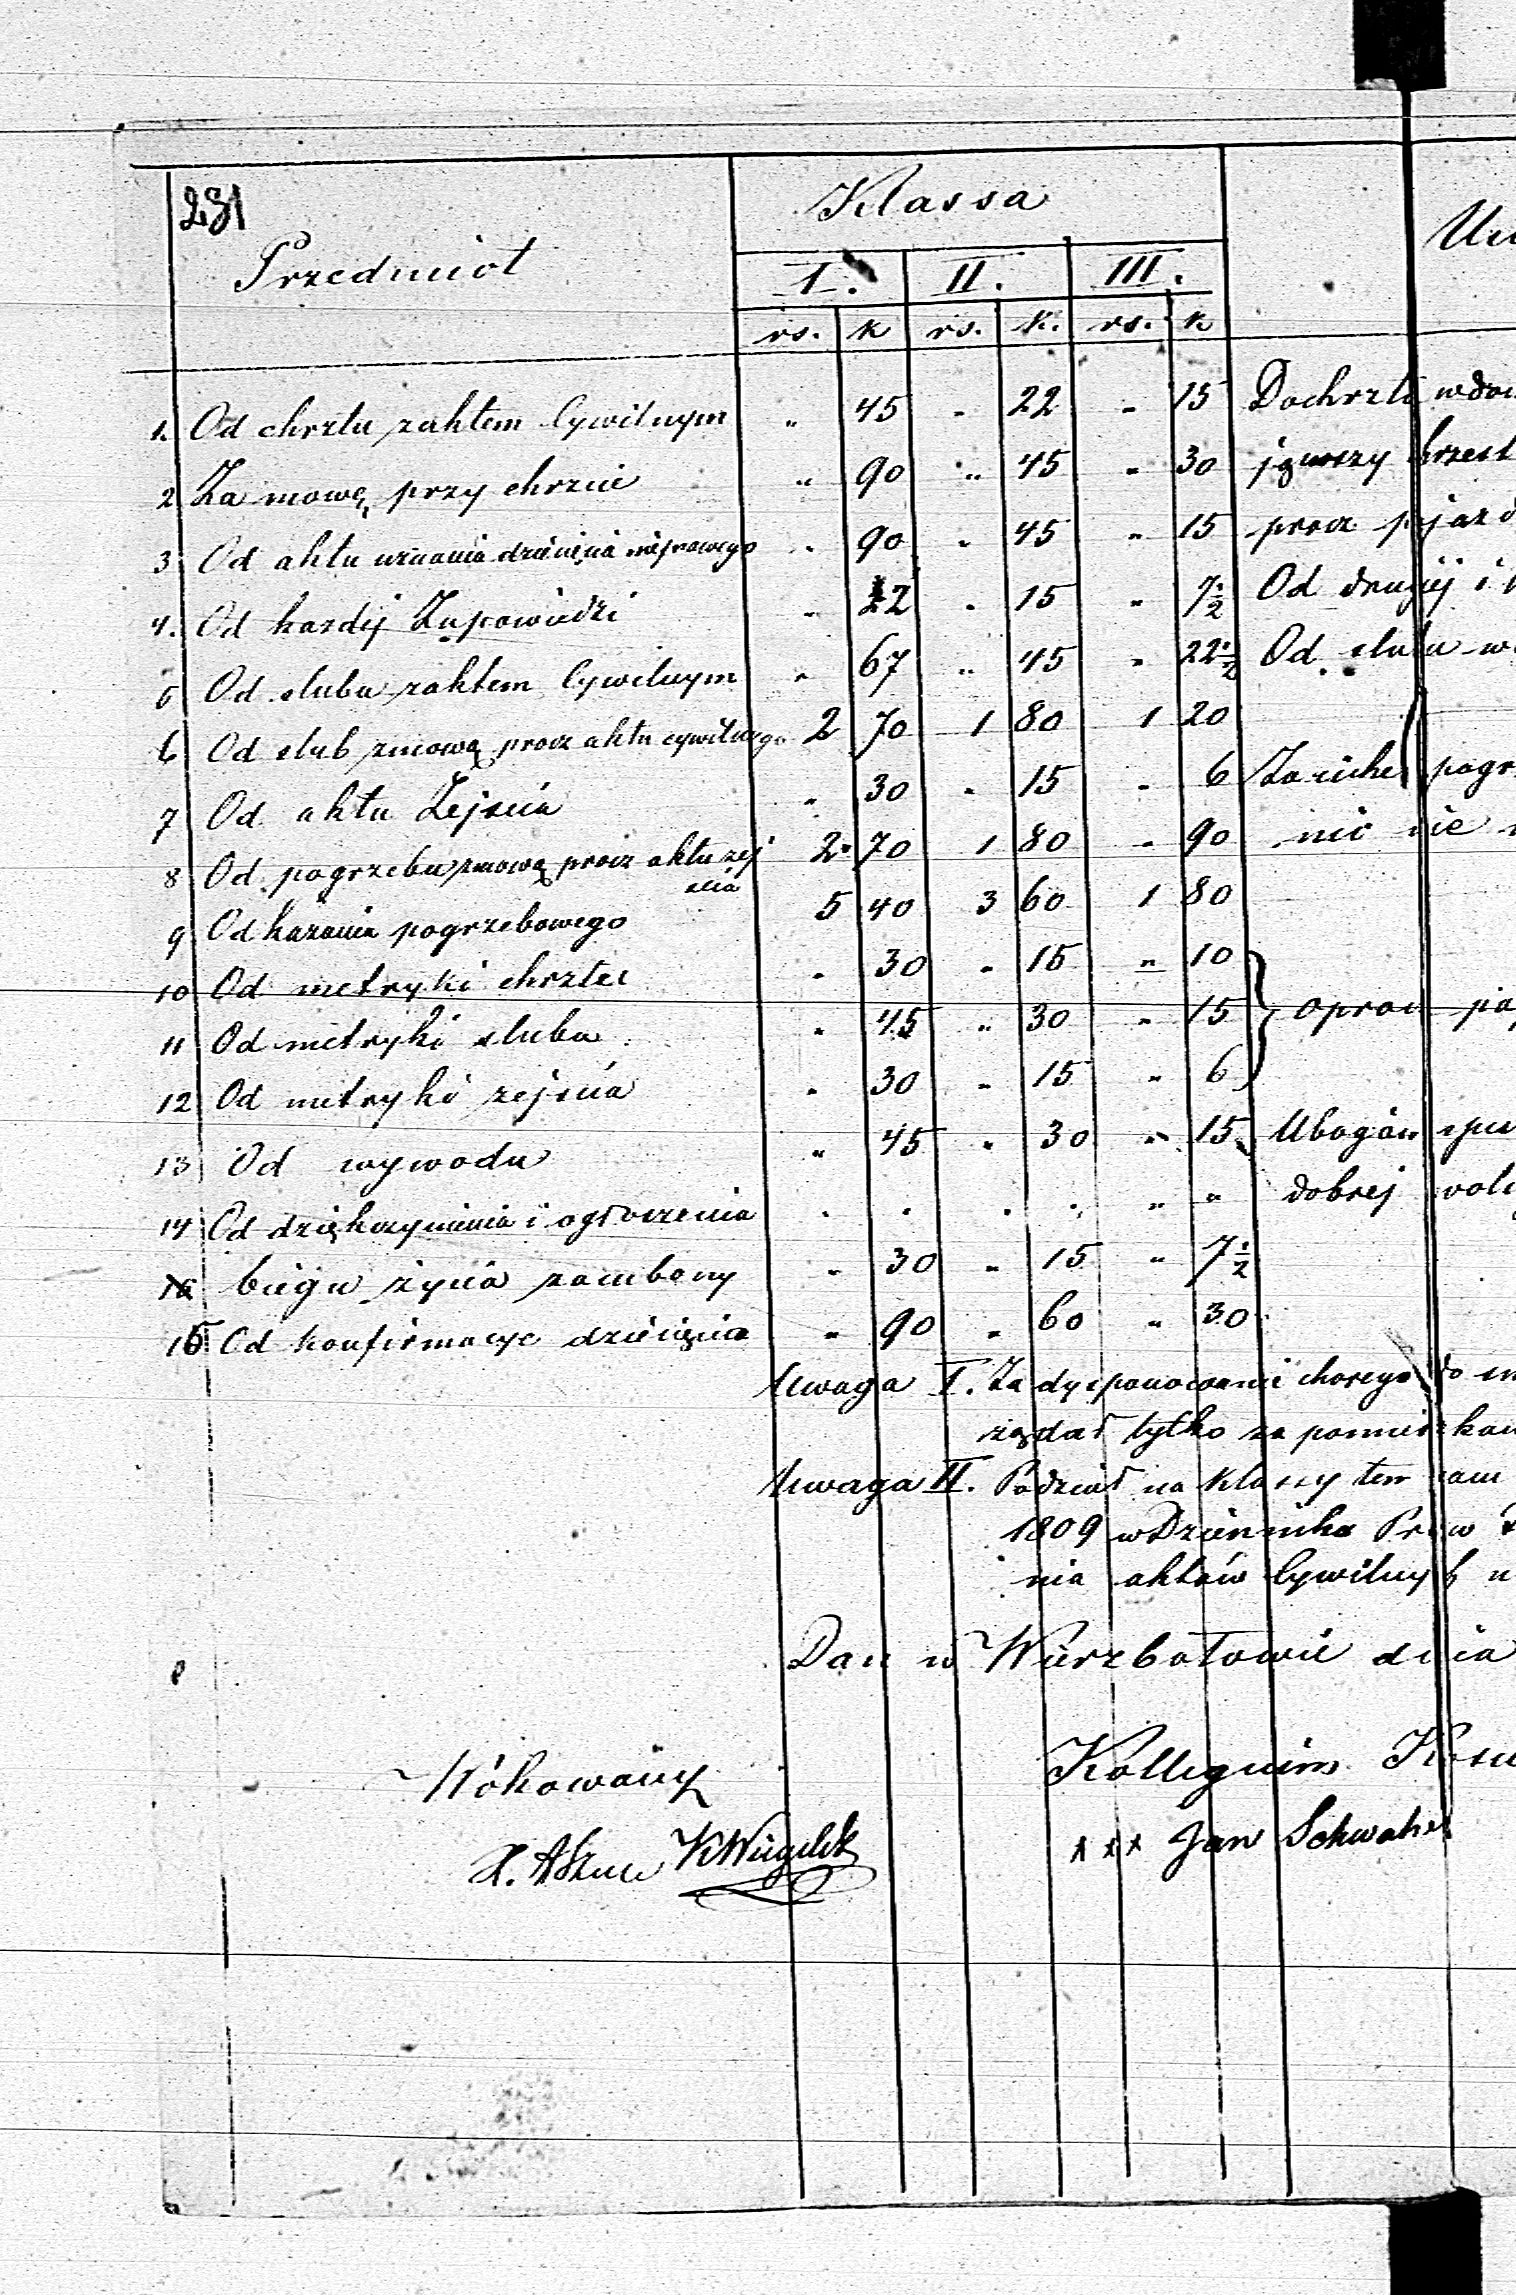 231
Przedmiot Klassa
I. II. III.
rs. k rs. k. rs. k
1. Od chrztu zaktem Cywilnym " 45 " 22 " 15 Do chrztu w
2 Za mowę przy chrzcie " 90 " 45 " 30 chrzest
3 Od aktu uznania dziecięcia nieprawego " 90 " 45 " 15 procz pojazd
4. Od kazdej Zapowiedzi " 22 " 15 " 7½ Od drugiej i
5 Od slubu zaktem Cywilnym " 67 " 45 " 22½ Od slubu w
6 Od slub zmową procz aktu cywilnego 2 70 1 80 1 20
7 Od aktu Zejscia " 30 " 15 " 6 Za ciche pogrz
8 Od pogrzebu zmową procz aktu zej 2 70 1 80 " 90 nic nie
scia
9 Od kazania pogrzebowego 5 40 3 60 1 80
10 Od metryki chrztu " 30 " 15 " 10
11 Od metryki slubu " 45 " 30 " 15 oprocz pap
12 Od metryki zejscia " 30 " 15 " 6
13 Od wywodu " 45 " 30 " 15 Ubogim
14 Od dziękczynienia i ogłoszenia " " " " " " dobrej woli
biegu życia zambony " 30 " 15 " 7½
15 Od konfirmacyc dziecięcia " 90 " 60 " 30
Uwaga I. Za dysponowanie chorego do
żądać tylko za pomieszkan
Uwaga II. Podział na klassy ten sam
1809 w Dzienniku Praw
nia aktów Cywilnych
Dan w Wierzbołowie dnia
Wokowany Kollegium
xxx Jan